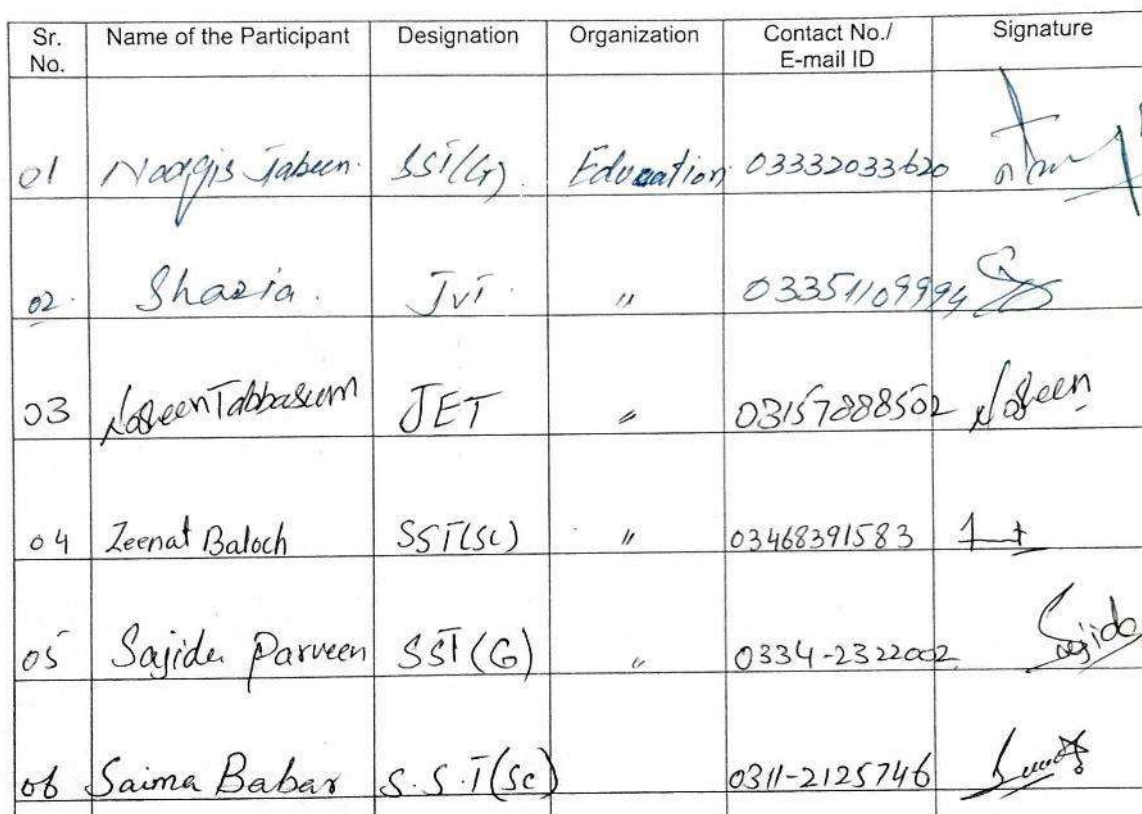 Sr. No. Name of the Participant Designation Organization Contact No./ E-mail ID Signature
01 Nargis Jabeen. SST(G). Education 03332033620
02. Shazia. JVT. " 03351109994
03 Noreen Tabbasum JET " 03157888502 Noreen
04 Zeenat Baloch SST(SC) " 03468391583
05 Sajida Parveen SST(G) " 0334-2322002 Sajida
06 Saima Babar S.S.T(SC) 0311-2125746